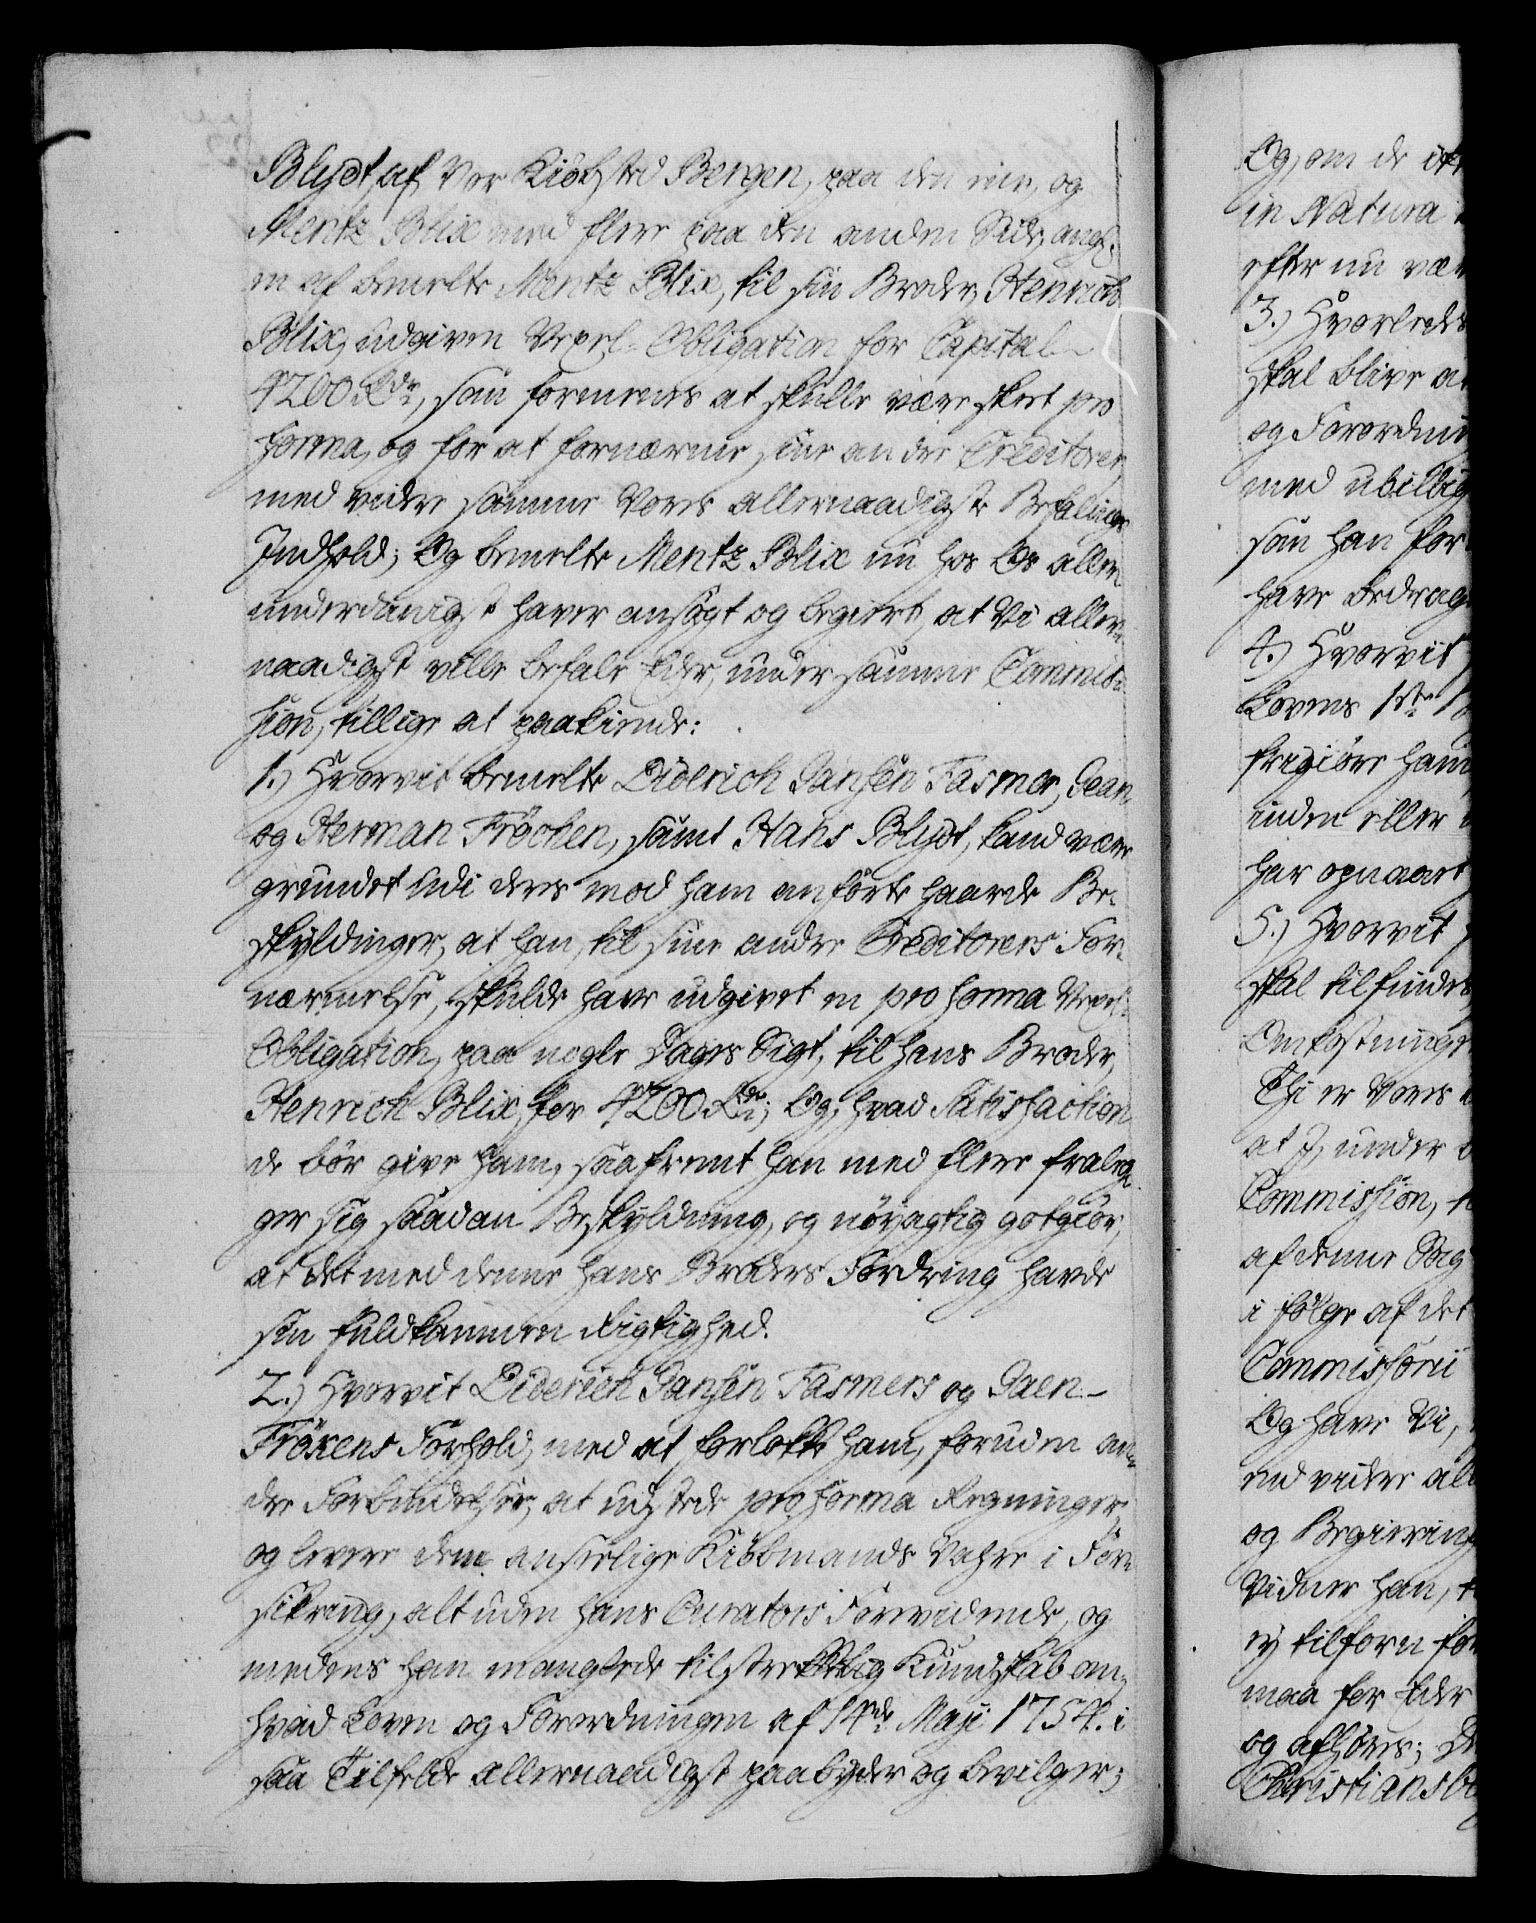 Blydt, af Vor Kiöbsted Bergen, paa den eene, og
Mentz Blix med flere paa den anden Side, angaa-
en af bemelte Mentz Blix, til sin Broder, Henrich
Blix, udgiven Vexel-Obligation for Capital
4200 Rdr, som formeenes at skulle være skeet pro
forma, og for at fornærme sine andre Creditorer
med videre samme Vores allernaadigste Befalings
Indhold; Og bemelte Mentz Blix nu hos Os aller-
underdanigst haver ansögt og begiert, at Vi aller-
naadigst ville befale Eder, under samme Commis-
sion, tillige at paakiende:
1.) Hvorvit bemelte Diderich Jansen Fasmer, Gean
og Herman Fröchen, samt Hans Blydt, kand være
grundet udi deres mod ham anförte haarde Be-
skyldinger, at han, til sine andre Creditorers For-
nærmelse, skulde have udgivet en pro forma Vexel-
Obligation, paa nogle Dages Sigt, til hans Broder,
Henrich Blix, for 4200 Rdr; Og, hvad Satisfaction
de bör give ham, saafremt han med flere fraleg-
ger sig saadan Beskyldning, og nöyagtig gotgiör,
at det med denne hans Broders Fordring havde
sin fuldkommen Rigtighed.
2.) Hvorvit Diderich Jansen Fasmers og Gaen
Frökens Forhold, med at forlokke ham, foruden an-
dre Forbindelser, at udstede pro forma Regninger,
og levere dem anseelige Kiöbmands Vahre i For-
sikring, alt uden hans Curators Forevidende, og
medens han manglede tilstrekkelig Kundskab om,
hvad Loven og Forordningen af 14de Maji 1754. i
saa Tilfelde allernaadigst paabyder og bevilger;
Og, om de
in Natura
efter nu vær
3.) Hvorledes
skal blive a
og Forordni
med ubillig
som han for
have bedrag
4.) Hvorvit
Lovens 1ste
frigiöre ham
inden eller
har opnaaet
5.) Hvorvit
skal tilfindes
Omkostninge
Thi er Vores
at I, under
Commission, t
af denne Sag
i fölge af det
Commissorii
Og have Vi,
end videre all
og Begiering
Vidner han, t
ey tilforn för
maa for Eder
og afhöres; D
Christiansb